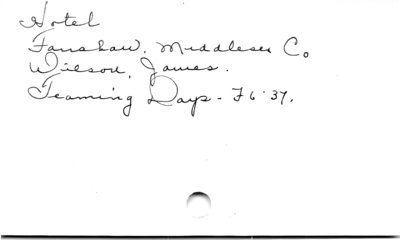 Hotel
Fanshaw. Middlesex Co
Wilson, James.
Teaming Days - F6.37.